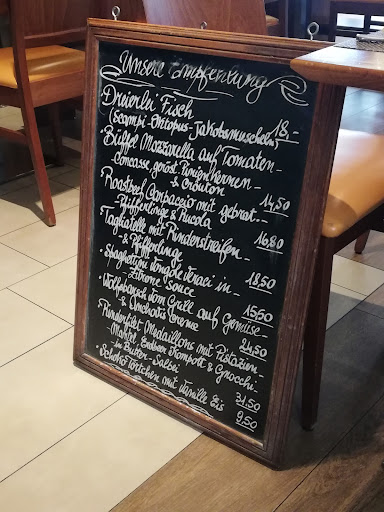 Unsere Empfehlung
Dreierlei Fisch
(Scampi-Oktopus-Jakobsmuscheln) 18,-
Büffel Mozzarella auf Tomaten-
Concasse, geröst. Pinienkernen-
& Croûton 14,50
Roastbeef Carpaccio mit gebrat.-
Pfifferlinge & Rucola 16,80
Tagliatelle mit Rinderstreifen-
& Pfifferling 18,50
Spaghettini Vongole Veraci in-
Zitrone Souce 15,50
Wolfsbarsch vom Grill auf Gemüse
& Anchovis Creme 24,50
Rinderfilet Medaillons mit Pistazien-
Mantel, & Gnocchi-
in Butter-Salbei 31,50
Schoko Törtchen mit Vanille Eis 9,50